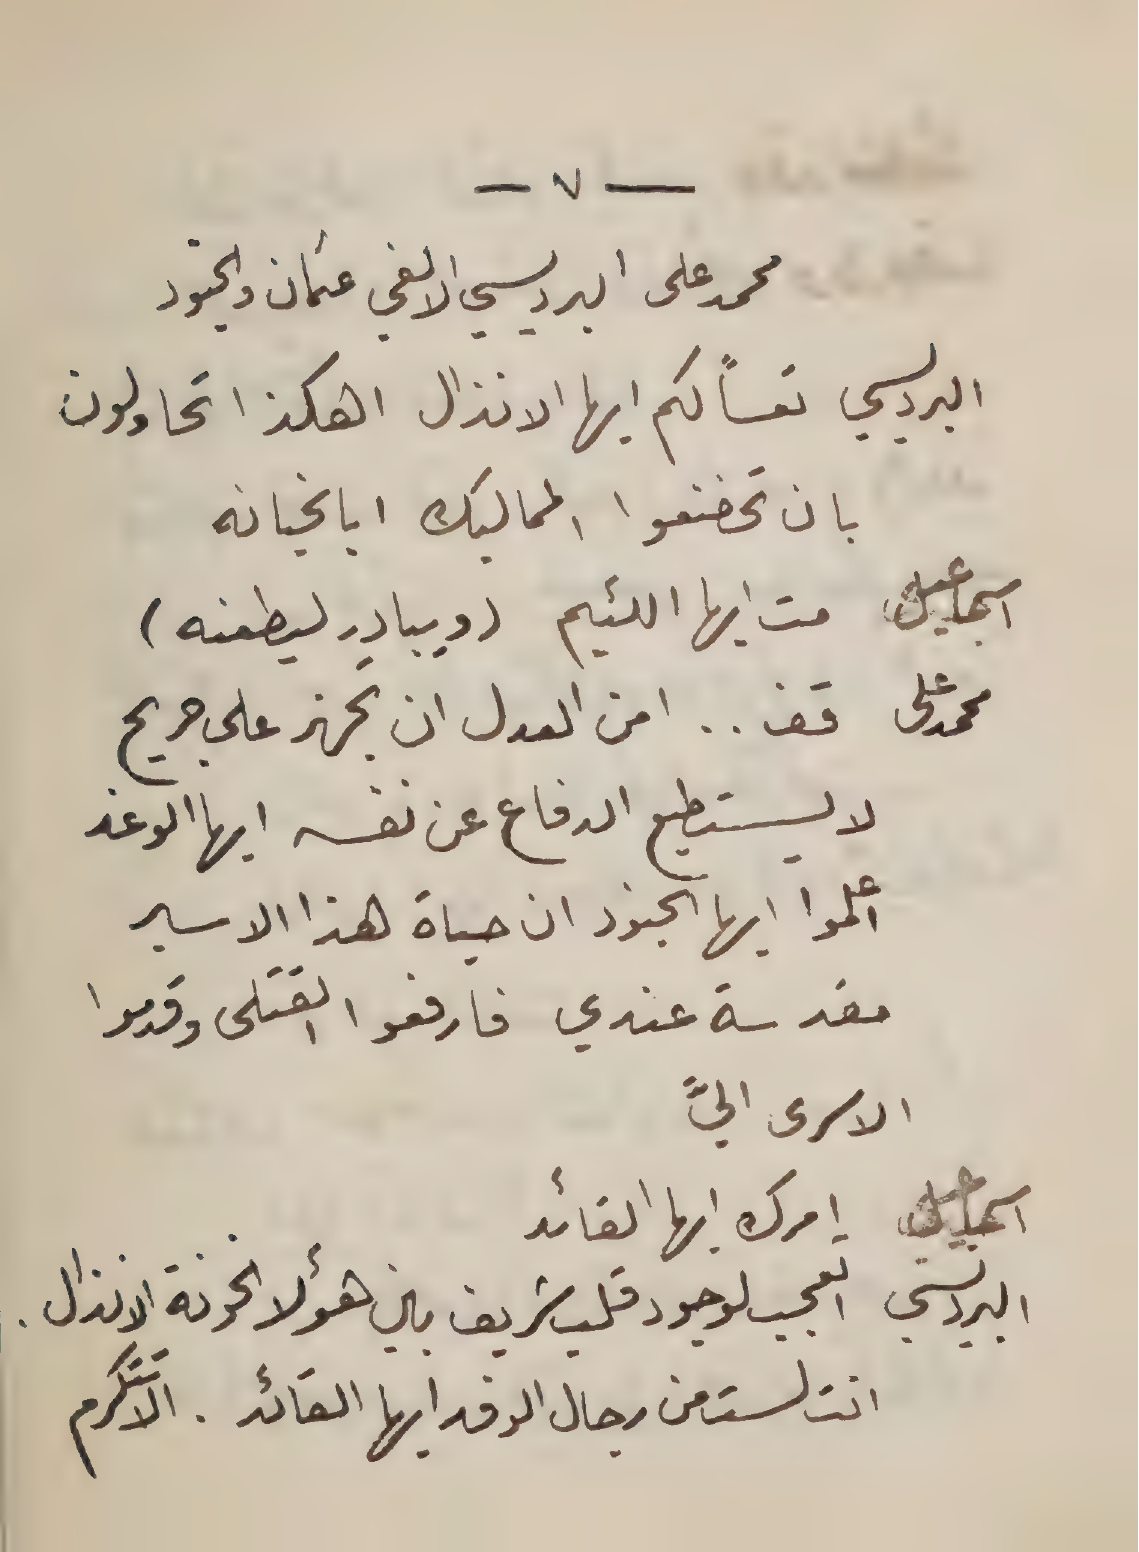 — ٧ —
محمد علي البرديسي الالفي عثمان والجنود
البرديسي تعساً لكم ايها الانذال اهكذا تحاولون
بان تخضعوا المماليك ابا لخيانه
اسماعيل مت ايها اللئيم (ويبادر ليطعنه)
محمد علي قف .. امن العدل ان تجهز علي جريح
لا يستطيع الدفاع عن نفسه ايها الوغد
اعلموا ايها الجنود ان حياة هذا الاسير
مقدسة عندي فارفعوا القتلى وقدموا
الاسرى اليَّ
اسماعيل امرك ايها القائد
البرديسي العجب لوجود قلب شريف بين هؤلا الخونة الانذال .
انت لست من رجال الوفد ايها القائد . الا تتكرم